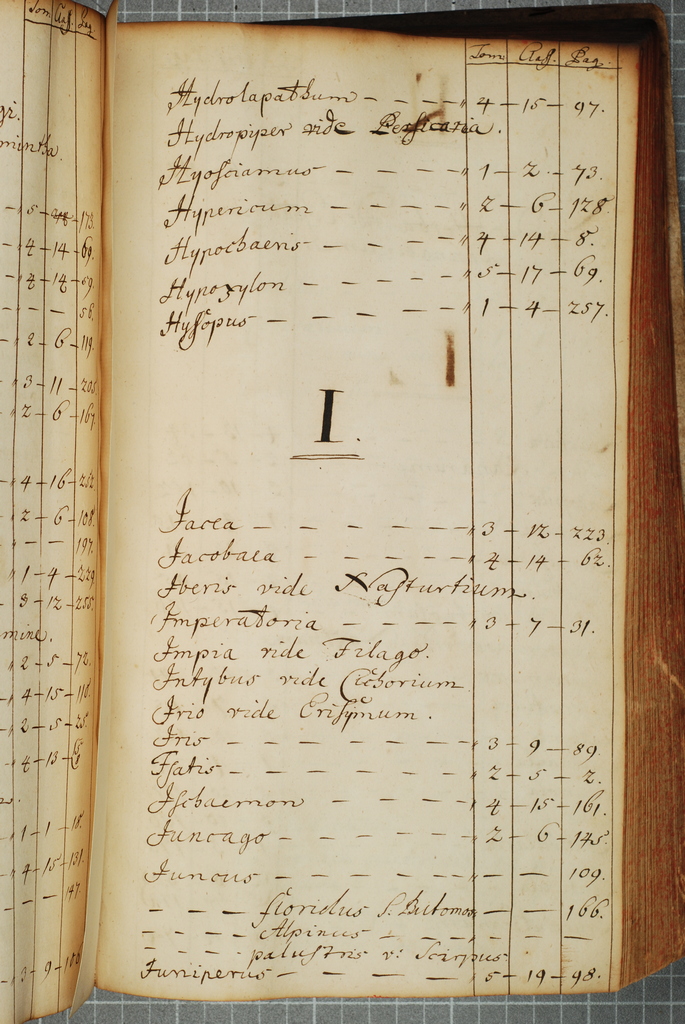 Tom. Class. Pag.
gr.
mintha.
5 - 173.
4 - 14 - 69.
4 - 14 - 59.
- - 56.
2 - 6 - 119.
3 - 11 - 205
2 - 6 - 167.
4 - 16 - 252
2 - 6 - 108.
- - 197.
1 - 4 - 229
3 - 12 - 255.
mine.
2 - 5 - 72.
4 - 15 - 118.
2 - 5 - 25.
4 - 13 -
1 - 1 - 18.
4 - 15 - 131.
- - 147.
3 - 9 -
Tom. Class. Pag.
Hydrolapathum - - - - " 4 - 15 - 97.
Hydropiper vide Persicaria.
Hyosciamus - - - - " 1 - 2 - 73.
Hypericum - - - - " 2 - 6 - 128.
Hypochaeris - - - - " 4 - 14 - 8.
Hypoxylon - - - - " 5 - 17 - 69.
Hyssopus - - - - " 1 - 4 - 257.
I.
Jacea - - - - - - " 3 - 12 - 223.
Jacobaea - - - - - " 4 - 14 - 62.
Iberis vide Nasturtium.
Imperatoria - - - - " 3 - 7 - 31.
Impia vide Filago.
Intybus vide Cichorium
Irio vide Erisymum.
Iris - - - - - - - " 3 - 9 - 89.
Isatis - - - - - - " 2 - 5 - 2.
Ischaemon - - - - " 4 - 15 - 161.
Juncago - - - - - " 2 - 6 - 145.
Juncus - - - - - " - - 109.
- - - floridus s. Butomos " - - 166.
- - - - Alpinus - - - " - - -
- - - - palustris v: Scirpus
Juniperus - - - - - " 5 - 19 - 98.